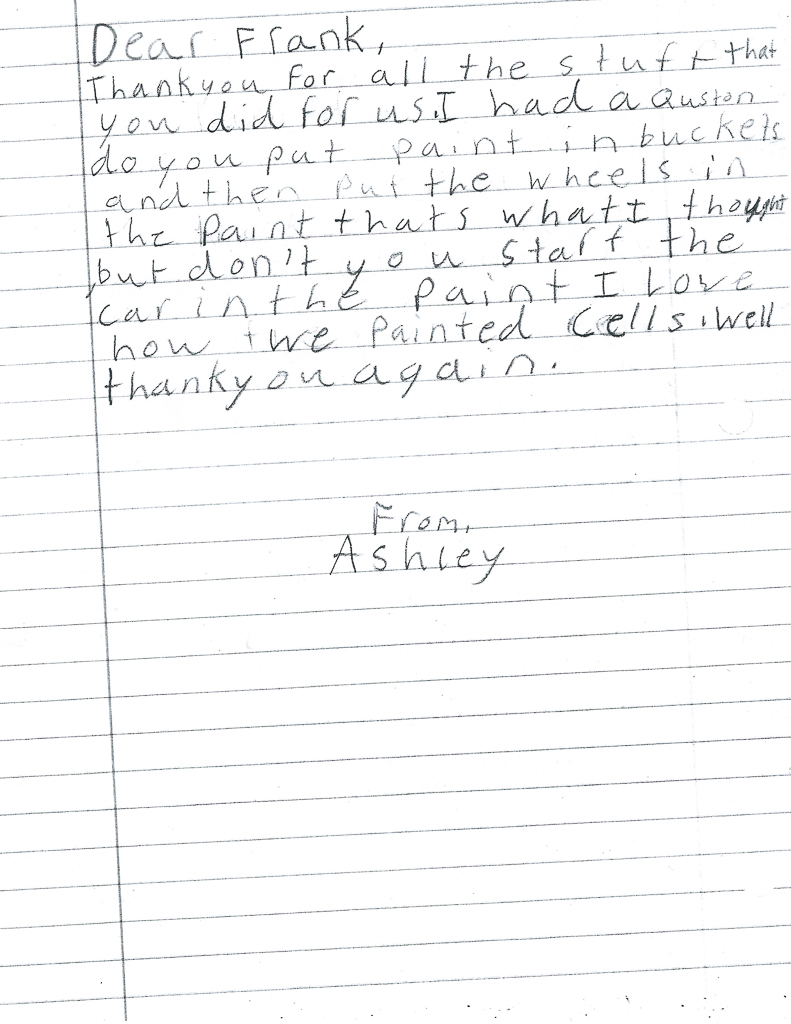 Dear Frank,
Thankyou For all the stuff that
you did for us.I had a Quston
do you put paint in buckets
and then put the wheels in
the Paint thats what I thought
but don't you start the
car in the paint I Love
how we Painted Cells.well
thankyou again.
From,
Ashley